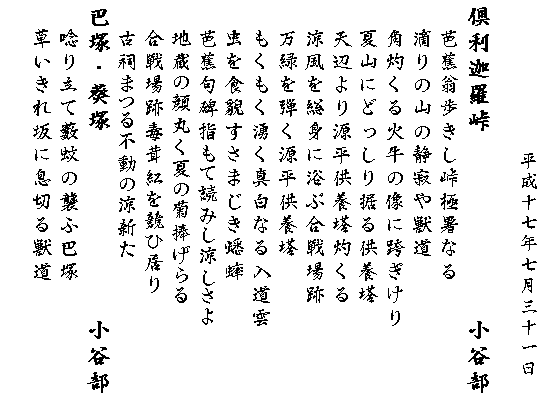 平成十七年七月三十一日
倶利迦羅峠 小谷部
芭蕉翁歩きし峠極暑なる
滴りの山の静寂や獣道
角灼くる火牛の像に跨ぎけり
夏山にどっしり据る供養塔
天辺より源平供養塔灼くる
涼風を総身に浴ぶ合戦場跡
万緑を弾く源平供養塔
もくもく湧く真白なる入道雲
虫を食む貌すさまじき蟋蟀
芭蕉句碑指もて読みし涼しさよ
地蔵の顔丸く夏の菊捧げらる
合戦場跡毒茸紅を競ひ居り
古祠まつる不動の涼新た
巴塚・葵塚 小谷部
唸り立て藪蚊の襲ふ巴塚
草いきれ坂に息切る獣道